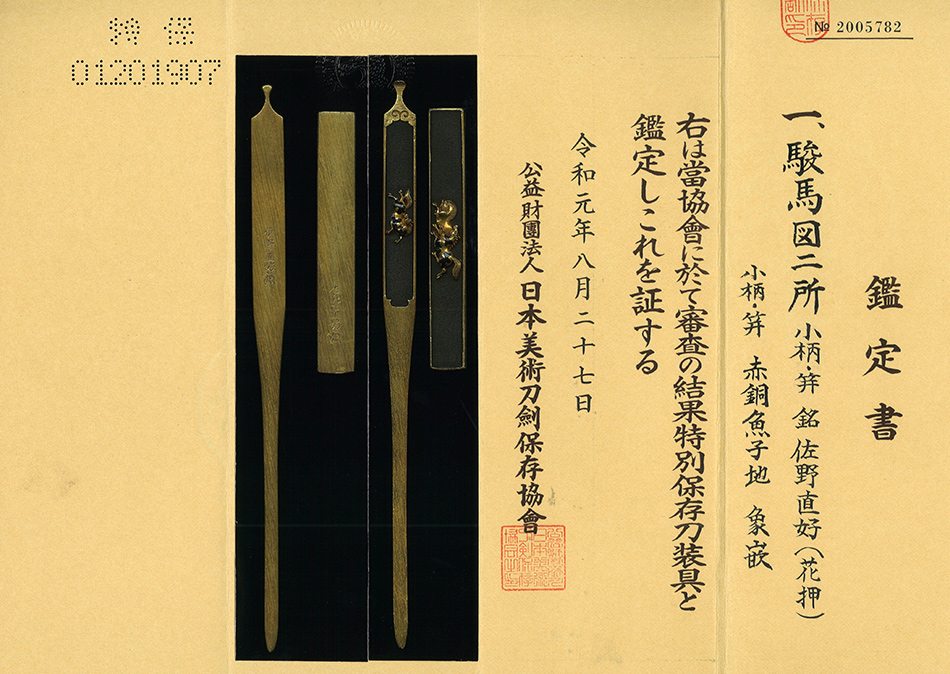 № 2005782
鑑定書
一、駿馬図二所 小柄・笄 銘 佐野直好(花押)
小柄・笄 赤銅魚子地 象嵌
右は當協會に於て審査の結果特別保存刀装具と
鑑定しこれを証する
令和元年八月二十七日
公益財團法人日本美術刀劍保存協會
特 保
01201907